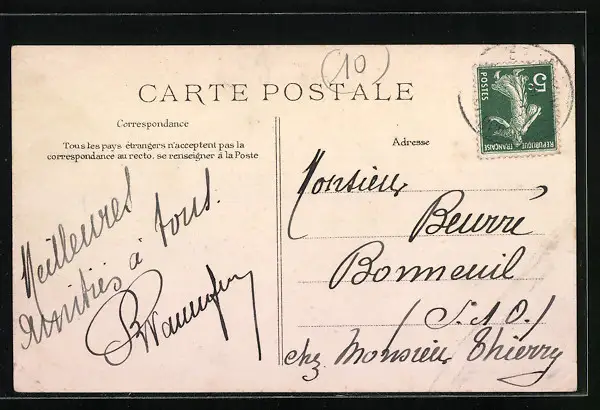 (10)
CARTE POSTALE
Correspondance
Tous les pays étrangers n'acceptent pas la
correspondance au recto. se renseigner à la Poste
Meilleures
Amitiés à tous.
Adresse
5c
POSTES
REPUBLIQUE FRANÇAISE
Monsieur
Beurré
Bonneuil
(S.&O.)
chez Monsieur Thierry